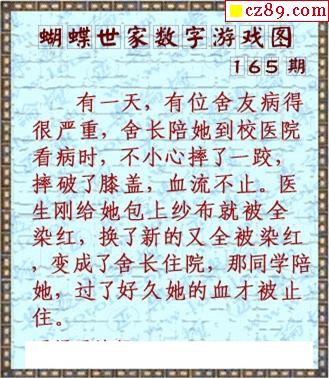 cz89.com
蝴蝶世家数字游戏图
165 期
有一天，有位舍友病得
很严重，舍长陪她到校医院
看病时，不小心摔了一跤，
摔破了膝盖，血流不止。医
生刚给她包上纱布就被全
染红，换了新的又全被染红
，变成了舍长住院，那同学陪
她，过了好久她的血才被止
住。